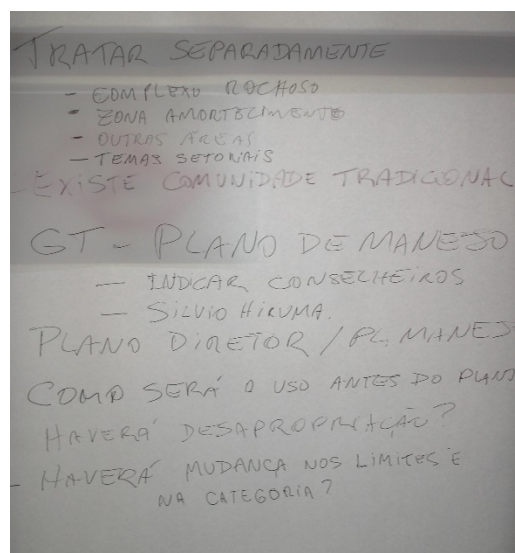 TRATAR SEPARADAMENTE
- COMPLEXO ROCHOSO
- ZONA AMORTECIMENTO
- OUTRAS ÁREAS
- TEMAS SETORIAIS
- EXISTE COMUNIDADE TRADICIONAL
GT - PLANO DE MANEJO
- INDICAR CONSELHEIROS
- SILVIO HIRUMA.
PLANO DIRETOR / PL. MANEJ
COMO SERÁ O USO ANTES DO PLANO
HAVERÁ DESAPROPRIAÇÃO?
- HAVERÁ MUDANÇA NOS LIMITES E
NA CATEGORIA?